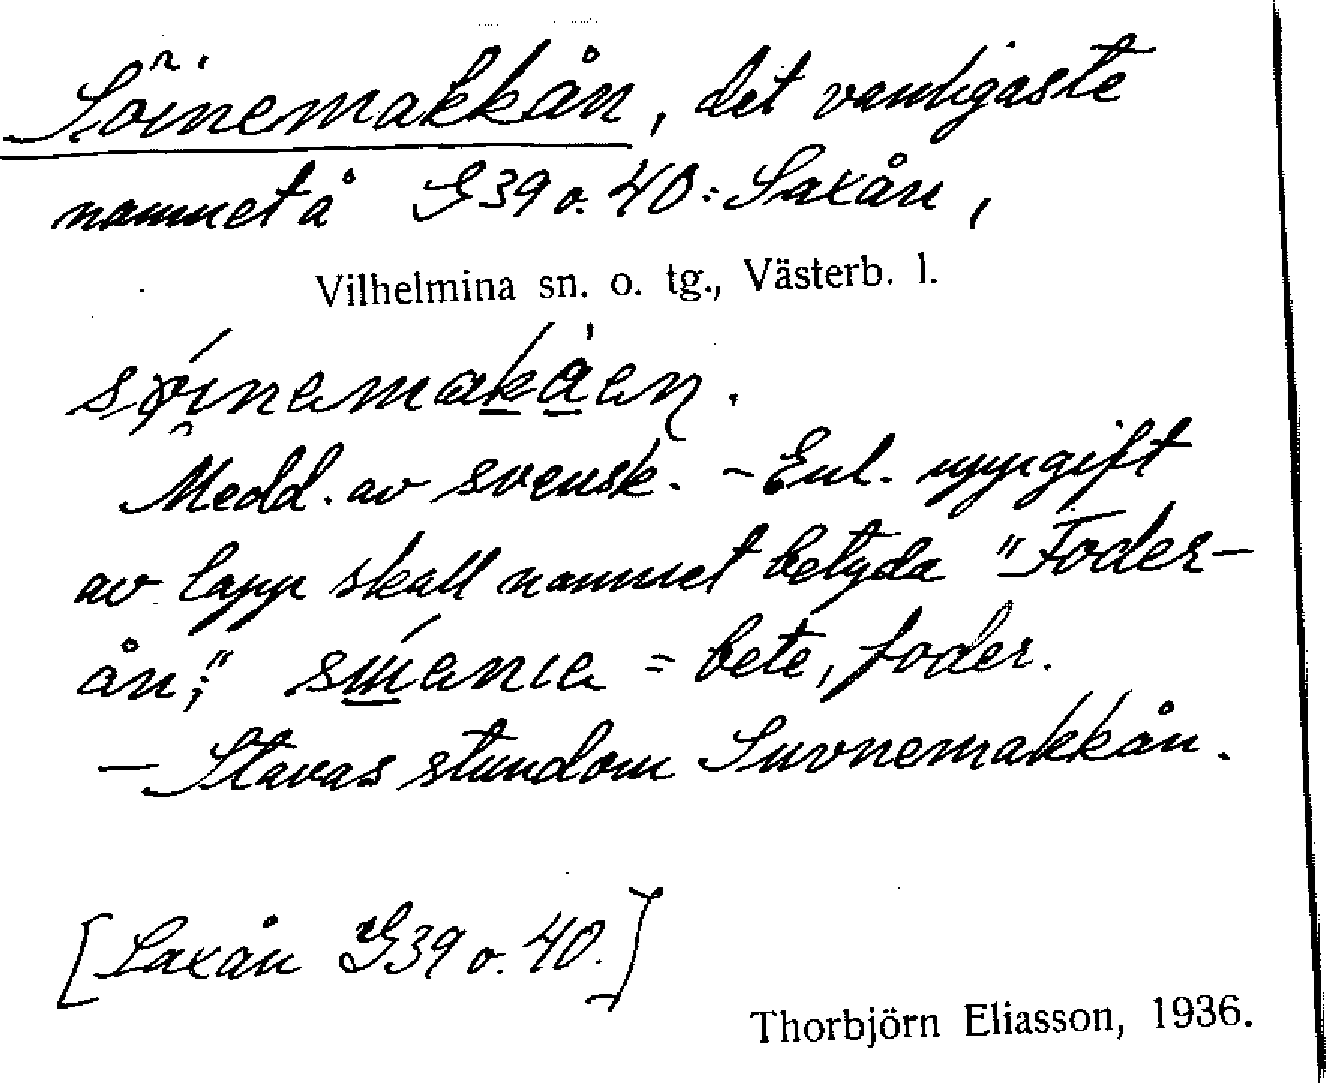 Söinemakkån, det vanligaste
namnet å G 39 o. 40 = Saxån,
Vilhelmina sn. o. tg., Västerb. l.
Medd. av svensk. – Enl. uppgift
av lapp skall namnet betyda "Foder-
ån;" = bete, foder.
– Stavas stundom Suvnemakkån.
[Saxån G 39 o. 40.]
Thorbjörn Eliasson, 1936.